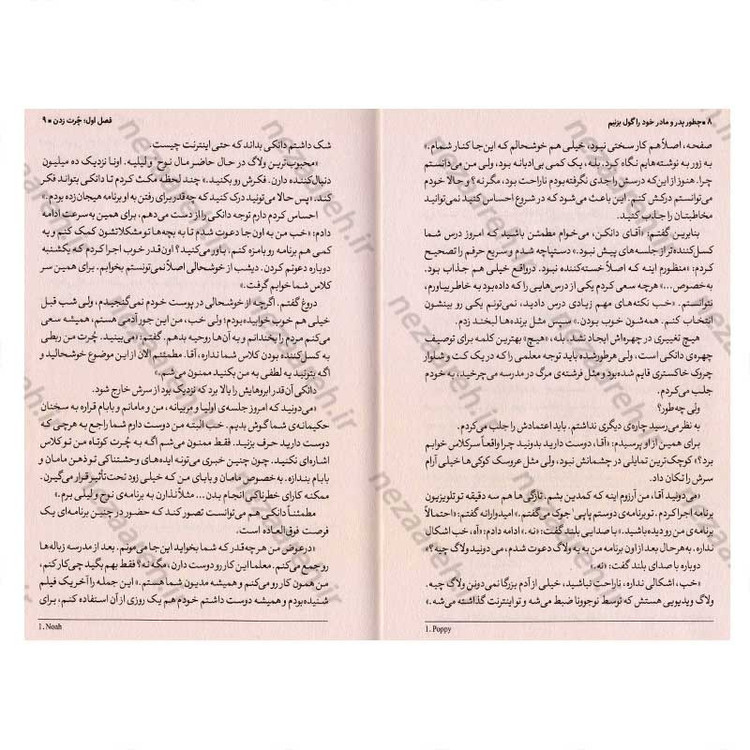 ۸ • چطور پدر و مادر خود را گول بزنیم
صفحه، اصلاً هم کار سختی نبود، خیلی هم خوشحالم که این‌جا کنار شمام.»
به زور به نوشته‌هایم نگاه کرد. بله، یک کمی بی‌ادبانه بود، ولی من می‌دانستم
چرا. هنوز از این‌که درسش را جدی نگرفته بودم ناراحت بود، مگر نه؟ و حالا خودم
می‌توانستم درکش کنم. این باعث می‌شود که در شروع احساس کنید نمی‌توانید
مخاطبتان را جذب کنید.
بنابرین گفتم: «آقای دانکن، می‌خوام مطمئن باشید که امروز درس شما
کسل‌کننده‌تر از جلسه‌های پیش نبود.» دستپاچه شدم و سریع حرفم را تصحیح
کردم: «منظورم اینه که اصلاً خسته‌کننده نبود. درواقع خیلی هم جذاب بود.
به خصوص...» هرچه سعی کردم یکی از درس‌هایی را که داده بود به خاطر بیاورم،
نتوانستم. «خب نکته‌های مهم زیادی درس دادید، نمی‌تونم یکی رو بینشون
انتخاب کنم. همه‌شون خوب بودن.» سپس مثل برنده‌ها لبخند زدم.
هیچ تغییری در چهره‌اش ایجاد نشد. بله، «هیچ» بهترین کلمه برای توصیف
چهره‌ی دانکی است، ولی هرطور شده باید توجه معلمی را که در یک کت و شلوار
چروک خاکستری قایم شده بود و مثل فرشته‌ی مرگ در مدرسه می‌چرخید، به خودم
جلب می‌کردم.
ولی چه‌طور؟
به نظر می‌رسید چاره‌ی دیگری نداشتم. باید اعتمادش را جلب می‌کردم.
برای همین از او پرسیدم: «آقا، دوست دارید بدونید چرا واقعاً سرکلاس خوابم
برد؟» کوچک‌ترین تمایلی در چشمانش نبود، ولی مثل عروسک کوکی‌ها خیلی آرام
سرش را تکان داد.
«می‌دونید آقا، من آرزوم اینه که کمدین بشم. تازگی‌ها هم سه دقیقه تو تلویزیون
برنامه اجرا کردم. تو برنامه‌ی دوستم پاپی¹ جوک می‌گفتم.» امیدوارانه گفتم: «احتمالاً
برنامه‌ی من رو دیده باشید.» با صدایی بلند گفت: «نه.» ادامه دادم: «آه، خب اشکال
نداره. به هرحال بعد از اون برنامه من به یه ولاگ دعوت شدم، می دونید ولاگ چیه؟»
دوباره با صدای بلند گفت: «نه.»
«خب، اشکالی نداره، ناراحت نباشید، خیلی از آدم بزرگا نمی‌دونن ولاگ چیه.
ولاگ ویدیویی هستش که توسط نوجوونا ضبط می‌شه و تو اینترنت گذاشته می‌شه.»
1. Poppy
فصل اول: چُرت زدن • ۹
شک داشتم دانکی بداند که حتی اینترنت چیست.
«محبوب‌ترین ولاگ در حال حاضر مال نوح¹ و لیلیه. اونا نزدیک ده میلیون
دنبال‌کننده دارن. فکرش رو بکنید.» چند لحظه مکث کردم تا دانکی بتواند فکر
کند. «پس حالا می‌تونید درک کنید که چه‌قدر برای رفتن به او برنامه هیجان‌زده بودم.»
احساس کردم دارم توجه دانکی را از دست می‌دهم، برای همین به سرعت ادامه
دادم: «خب من به اون جا دعوت شدم تا به بچه‌ها تو مشکلاتشون کمک کنم و یه
کمی هم برنامه رو بامزه کنم. باورمی‌کنید؟ اون‌قدر خوب اجرا کردم که یکشنبه
دوباره دعوتم کردن. دیشب از خوشحالی اصلاً نمی‌تونستم بخوابم. برای همین سر
کلاس شما خوابم گرفت.»
دروغ گفتم. اگرچه از خوشحالی در پوست خودم نمی‌گنجیدم، ولی شب قبل
خیلی هم خوب خوابیده بودم؛ ولی خب، من این جور آدمی هستم، همیشه سعی
می‌کنم مردم را بخندانم و به آن‌ها روحیه بدهم. گفتم: «می‌بینید. چرت من ربطی
به کسل‌کننده بودن کلاس شما نداره، آقا. مطمئنم الان از این موضوع خوشحالید و
اگه بتونید یه لطفی به من بکنید ممنون می‌شم.»
دانکی آن قدر ابروهایش را بالا برد که نزدیک بود از سرش خارج شود.
«می‌دونید که امروز جلسه‌ی اولیا و مربیانه، من و مامانم و بابام قراره به سخنان
حکیمانه‌ی شما گوش بدیم. خب البته من دوست دارم شما راجع به هرچی که
دوست دارید حرف بزنید. فقط ممنون می‌شم اگه به چُرت کوتاه من تو کلاس
اشاره‌ای نکنید. چون چنین خبری می‌تونه ایده‌های وحشتناکی تو ذهن مامان و
بابام بندازه. به خصوص مامان و بابای من که خیلی زود تحت تأثیر قرار می‌گیرن.
ممکنه کارای خطرناکی انجام بدن... مثلاً نذارن به برنامه‌ی نوح و لیلی برم.»
مطمئناً دانکی هم می‌توانست تصور کند که حضور در چنین برنامه‌ای یک
فرصت فوق‌العاده است.
«درعوض من هرچه‌قدر که شما بخواید این‌جا می‌مونم. بعد از مدرسه زباله‌ها
رو جمع می‌کنم. معلما این کار رو دوست دارن، مگه نه؟ فقط بهم بگید چی کار کنم،
من همون کار رو می‌کنم و همیشه مدیون شما هستم.» این جمله را آخر یک فیلم
شنیده بودم و همیشه دوست داشتم خودم هم یک روزی از آن استفاده کنم، برای
1. Noah
nezaareh.ir